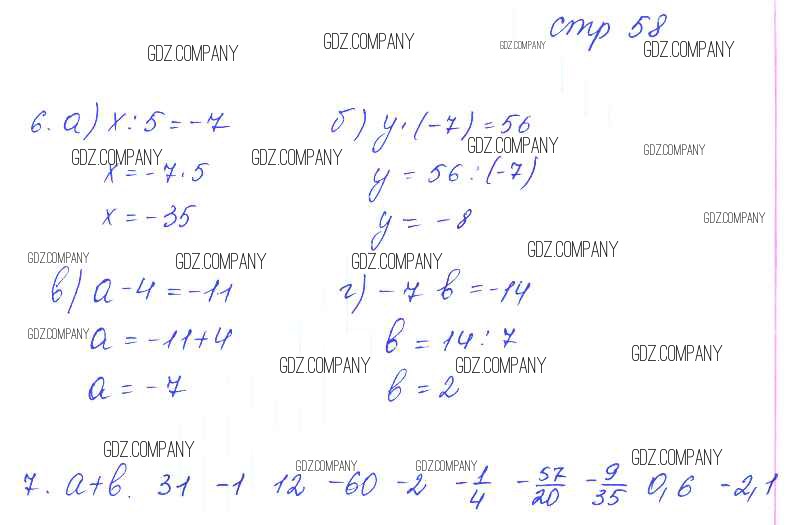 стр 58
GDZ.COMPANY GDZ.COMPANY GDZ.COMPANY GDZ.COMPANY
6. а) x : 5 = -7 б) y · (-7) = 56
GDZ.COMPANY GDZ.COMPANY GDZ.COMPANY GDZ.COMPANY
x = -7 · 5 y = 56 : (-7)
x = -35 y = -8
GDZ.COMPANY
GDZ.COMPANY GDZ.COMPANY GDZ.COMPANY GDZ.COMPANY
в) a - 4 = -11 г) -7 в = -14
GDZ.COMPANY GDZ.COMPANY
a = -11 + 4 в = 14 : 7
GDZ.COMPANY GDZ.COMPANY
a = -7 в = 2
GDZ.COMPANY GDZ.COMPANY GDZ.COMPANY GDZ.COMPANY
7. a+в. 31 -1 12 -60 -2 -1/4 -57/20 -9/35 0,6 -2,1